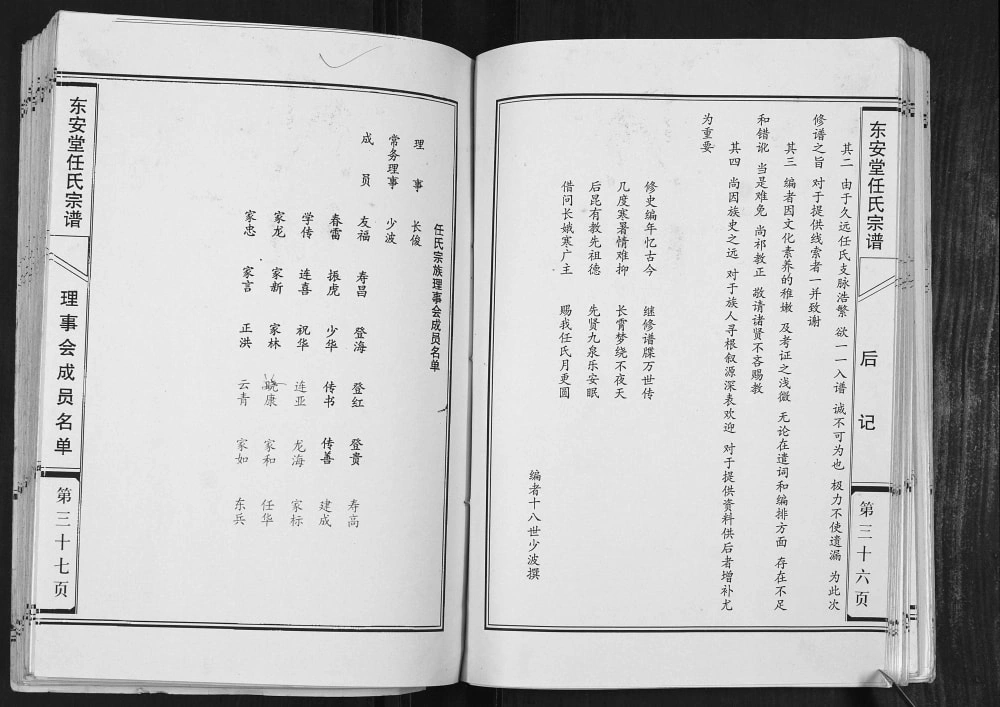 东安堂任氏宗谱
后记
第三十六页
其二 由于久远任氏支脉浩繁 欲一一入谱 诚不可为也 极力不使遗漏 为此次
修谱之旨 对于提供线索者一并致谢
其三 编者因文化素养的稚嫩 及考证之浅微 无论在遣词和编排方面 存在不足
和错讹 当是难免 尚祁教正 敬请诸贤不吝赐教
其四 尚因族史之远 对于族人寻根叙源深表欢迎 对于提供资料供后者增补尤
为重要
修史编年忆古今 继修谱牒万世传
几度寒暑情难抑 长霄梦绕不夜天
后昆有教先祖德 先贤九泉乐安眠
借问长娥寒广主 赐我任氏月更圆
编者十八世少波撰
任氏宗族理事会成员名单
理事 长俊
常务理事 少波
成员 友福 寿昌 登海 登红 登贵 寿高
春雷 振虎 少华 传书 传善 建成
学传 连喜 祝华 连亚 龙海 家标
家龙 家新 家林 晓康 家和 任华
家忠 家言 正洪 云青 家如 东兵
东安堂任氏宗谱
理事会成员名单
第三十七页